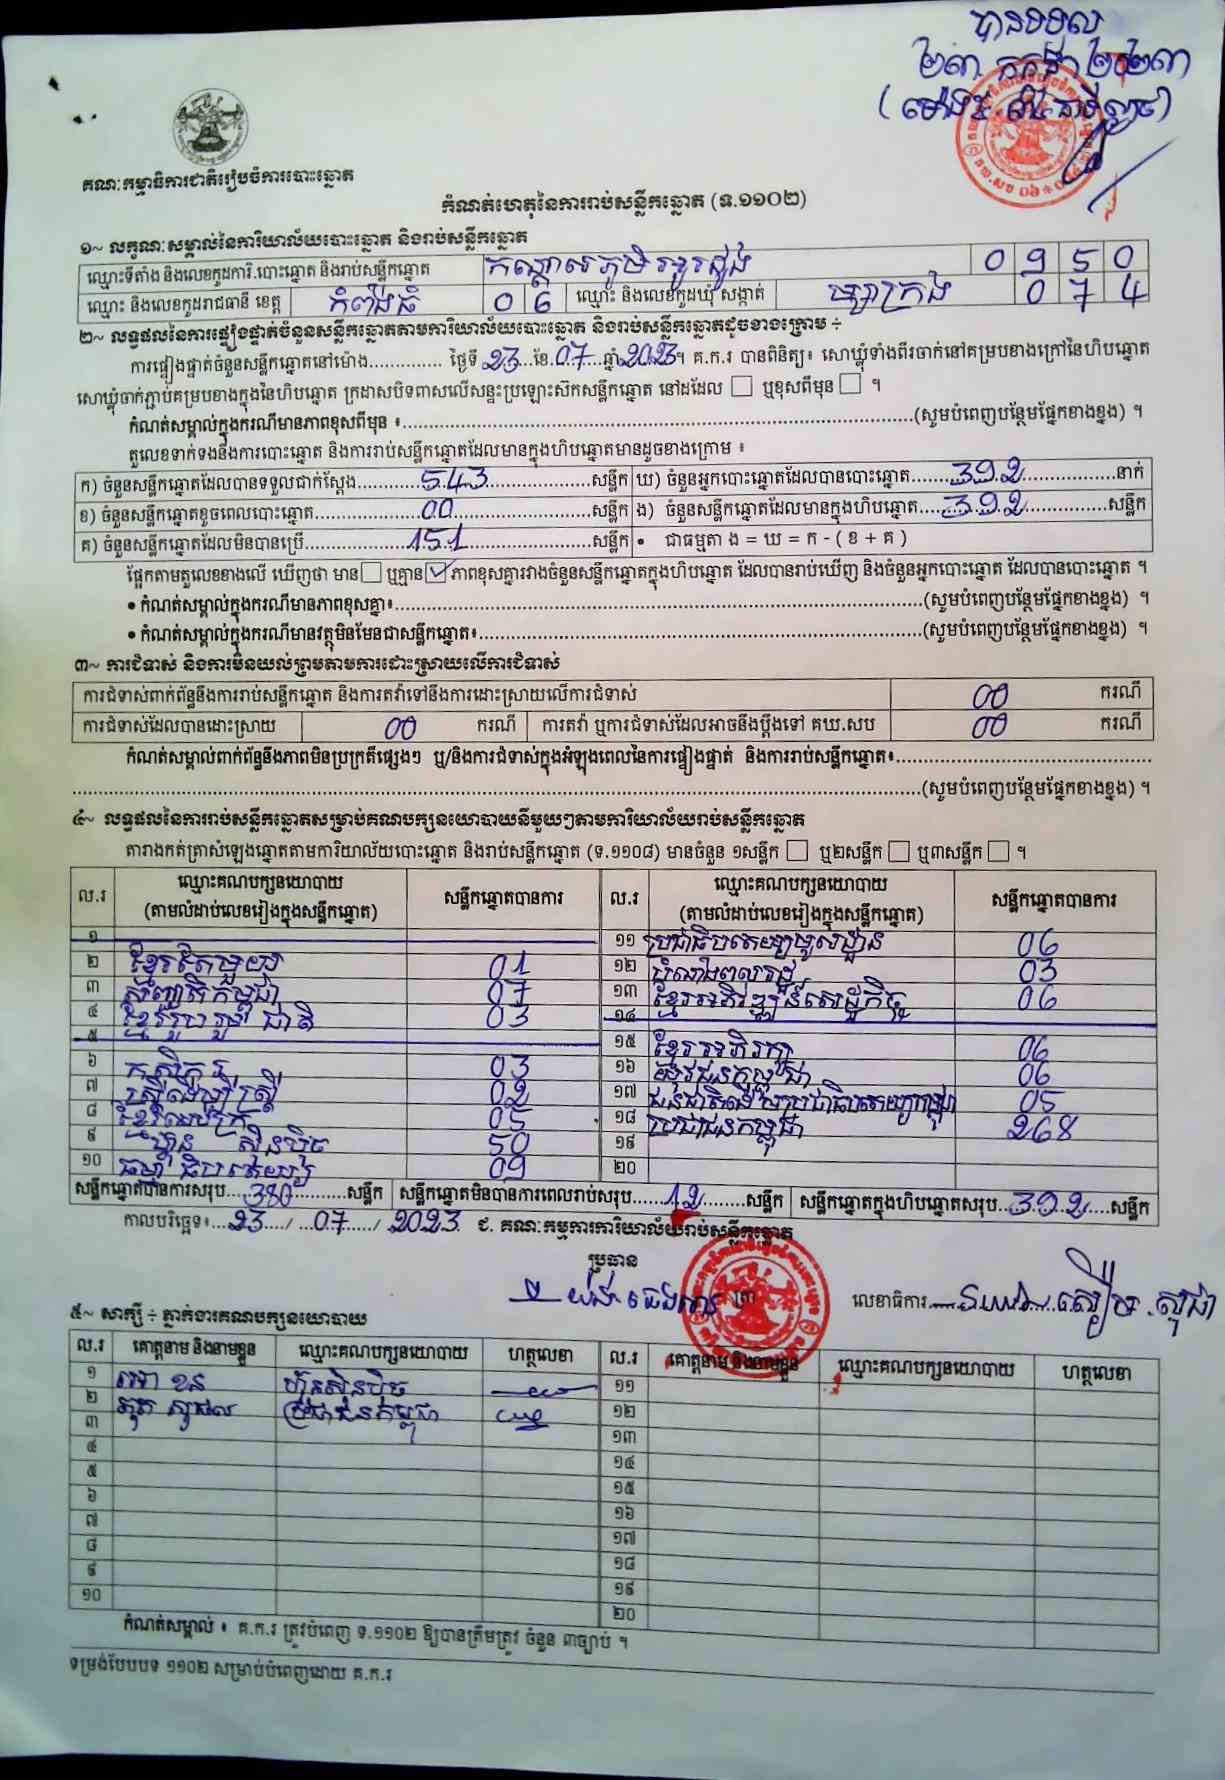 បានទទួល
គណៈកម្មាធិការជាតិរៀបចំការបោះឆ្នោត
កំណត់ហេតុនៃការរាប់សន្លឹកឆ្នោត (ទ.១១០២)
១~ លក្ខណៈសម្គាល់នៃការិយាល័យបោះឆ្នោត និងរាប់សន្លឹកឆ្នោត
ឈ្មោះទីតាំង និងលេខកូដការិ.បោះឆ្នោត និងរាប់សន្លឹកឆ្នោត 0 9 5 0
ឈ្មោះ និងលេខកូដរាជធានី ខេត្ត កំពង់ធំ 0 6 ឈ្មោះ និងលេខកូដឃុំ សង្កាត់ 0 7 4
២~ លទ្ធផលនៃការផ្ទៀងផ្ទាត់ចំនួនសន្លឹកឆ្នោតតាមការិយាល័យបោះឆ្នោត និងរាប់សន្លឹកឆ្នោតដូចខាងក្រោម ÷
ការផ្ទៀងផ្ទាត់ចំនួនសន្លឹកឆ្នោតនៅម៉ោង.............. ថ្ងៃទី 23 ខែ 07 ឆ្នាំ 2023។ គ.ក.រ បានពិនិត្យ៖ សោឃ្លុំទាំងពីរចាក់នៅគម្របខាងក្រៅនៃហិបឆ្នោត
សោឃ្លុំចាក់ភ្ជាប់គម្របខាងក្នុងនៃហិបឆ្នោត ក្រដាសបិទពាសលើសន្ទះប្រឡោះស៊កសន្លឹកឆ្នោត នៅដដែល □ ឬខុសពីមុន □ ។
កំណត់សម្គាល់ក្នុងករណីមានភាពខុសពីមុន ៖..............(សូមបំពេញបន្ថែមផ្នែកខាងខ្នង) ។
តួលេខទាក់ទងនឹងការបោះឆ្នោត និងការរាប់សន្លឹកឆ្នោតដែលមានក្នុងហិបឆ្នោតមានដូចខាងក្រោម ៖
ក) ចំនួនសន្លឹកឆ្នោតដែលបានទទួលជាក់ស្តែង 543 សន្លឹក ឃ) ចំនួនអ្នកបោះឆ្នោតដែលបានបោះឆ្នោត 392 នាក់
ខ) ចំនួនសន្លឹកឆ្នោតខូចពេលបោះឆ្នោត 00 សន្លឹក ង) ចំនួនសន្លឹកឆ្នោតដែលមានក្នុងហិបឆ្នោត 392 សន្លឹក
គ) ចំនួនសន្លឹកឆ្នោតដែលមិនបានប្រើ 151 សន្លឹក • ជាធម្មតា ង = ឃ = ក - ( ខ + គ )
ផ្អែកតាមតួលេខខាងលើ ឃើញថា មាន □ ឬគ្មាន ☑ ភាពខុសគ្នារវាងចំនួនសន្លឹកឆ្នោតក្នុងហិបឆ្នោត ដែលបានរាប់ឃើញ និងចំនួនអ្នកបោះឆ្នោត ដែលបានបោះឆ្នោត ។
• កំណត់សម្គាល់ក្នុងករណីមានភាពខុសគ្នា៖..............(សូមបំពេញបន្ថែមផ្នែកខាងខ្នង) ។
• កំណត់សម្គាល់ក្នុងករណីមានវត្ថុមិនមែនជាសន្លឹកឆ្នោត៖..............(សូមបំពេញបន្ថែមផ្នែកខាងខ្នង) ។
៣~ ការជំទាស់ និងការមិនយល់ព្រមតាមការដោះស្រាយលើការជំទាស់
ការជំទាស់ពាក់ព័ន្ធនឹងការរាប់សន្លឹកឆ្នោត និងការតវ៉ាទៅនឹងការដោះស្រាយលើការជំទាស់ 00 ករណី
ការជំទាស់ដែលបានដោះស្រាយ 00 ករណី ការតវ៉ា ឬការជំទាស់ដែលអាចនឹងប្តឹងទៅ គឃ.សប 00 ករណី
កំណត់សម្គាល់ពាក់ព័ន្ធនឹងភាពមិនប្រក្រតីផ្សេងៗ ឬ/និងការជំទាស់ក្នុងអំឡុងពេលនៃការផ្ទៀងផ្ទាត់ និងការរាប់សន្លឹកឆ្នោត៖..............
..............(សូមបំពេញបន្ថែមផ្នែកខាងខ្នង) ។
៤~ លទ្ធផលនៃការរាប់សន្លឹកឆ្នោតសម្រាប់គណបក្សនយោបាយនីមួយៗតាមការិយាល័យរាប់សន្លឹកឆ្នោត
តារាងកត់ត្រាសំឡេងឆ្នោតតាមការិយាល័យបោះឆ្នោត និងរាប់សន្លឹកឆ្នោត (ទ.១១០៨) មានចំនួន ១សន្លឹក □ ឬ២សន្លឹក □ ឬ៣សន្លឹក □ ។
ល.រ ឈ្មោះគណបក្សនយោបាយ (តាមលំដាប់លេខរៀងក្នុងសន្លឹកឆ្នោត) សន្លឹកឆ្នោតបានការ ល.រ ឈ្មោះគណបក្សនយោបាយ (តាមលំដាប់លេខរៀងក្នុងសន្លឹកឆ្នោត) សន្លឹកឆ្នោតបានការ
១ ១១ ប្រជាធិបតេយ្យមូលដ្ឋាន 06
២ ខ្មែរតែមួយ 01 ១២ បំណងពលរដ្ឋ 03
៣ សញ្ជាតិកម្ពុជា 07 ១៣ ខ្មែរអភិវឌ្ឍន៍សេដ្ឋកិច្ច 06
៤ ខ្មែររួបរួមជាតិ 03 ១៤
៥ ១៥ ខ្មែរអភិរក្ស 06
៦ កសិករ 03 ១៦ យុវជនកម្ពុជា 06
៧ ស្ត្រីដើម្បីស្ត្រី 02 ១៧ ជនជាតិដើមប្រជាធិបតេយ្យកម្ពុជា 05
៨ 05 ១៨ ប្រជាជនកម្ពុជា 268
៩ ហ៊្វុនស៊ិនប៉ិច 50 ១៩
១០ ធម្មាធិបតេយ្យ 09 ២០
សន្លឹកឆ្នោតបានការសរុប 380 សន្លឹក សន្លឹកឆ្នោតមិនបានការពេលរាប់សរុប 12 សន្លឹក សន្លឹកឆ្នោតក្នុងហិបឆ្នោតសរុប 392 សន្លឹក
កាលបរិច្ឆេទ៖ 23 / 07 / 2023 ជ. គណៈកម្មការការិយាល័យរាប់សន្លឹកឆ្នោត
ប្រធាន
លេខាធិការ
៥~ សាក្សី ÷ ភ្នាក់ងារគណបក្សនយោបាយ
ល.រ គោត្តនាម និងនាមខ្លួន ឈ្មោះគណបក្សនយោបាយ ហត្ថលេខា ល.រ គោត្តនាម និងនាមខ្លួន ឈ្មោះគណបក្សនយោបាយ ហត្ថលេខា
១ ហ៊្វុនស៊ិនប៉ិច ១១
២ ប្រជាជនកម្ពុជា ១២
៣ ១៣
៤ ១៤
៥ ១៥
៦ ១៦
៧ ១៧
៨ ១៨
៩ ១៩
១០ ២០
កំណត់សម្គាល់ ៖ គ.ក.រ ត្រូវបំពេញ ទ.១១០២ ឱ្យបានត្រឹមត្រូវ ចំនួន ៣ច្បាប់ ។
ទម្រង់បែបបទ ១១០២ សម្រាប់បំពេញដោយ គ.ក.រ